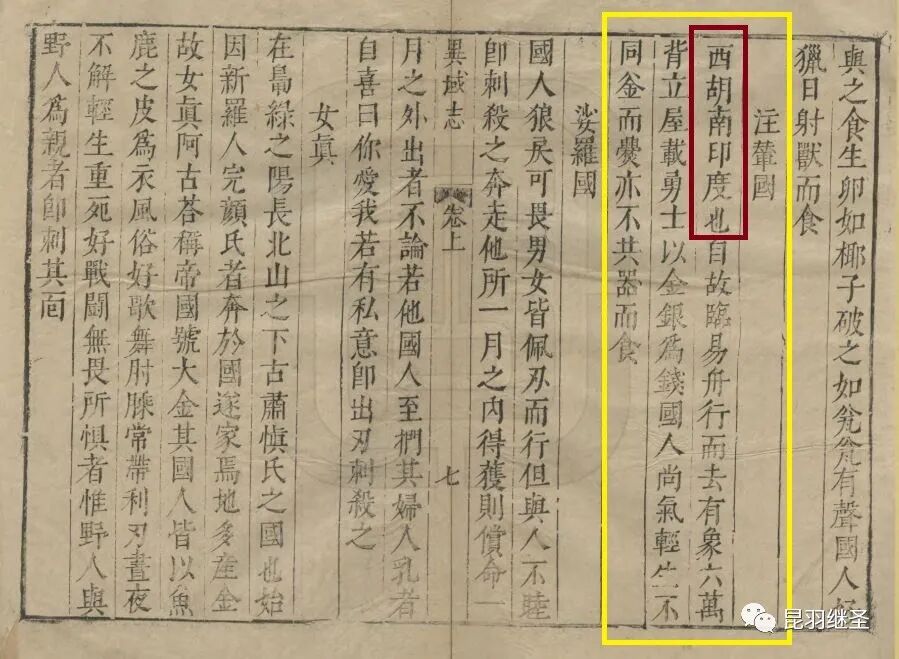 與之食生卵如椰子破之如瓮瓮有聲國人
獵日射獸而食
注輦國
西胡南印度也自故臨易舟行而去有象六萬
背立屋載勇士以金銀爲錢國人尚氣輕生不
同釜而爨亦不共器而食
娑羅國
國人狼戾可畏男女皆佩刃而行但與人不睦
卽刺殺之奔走他所一月之內得獲則償命一
異域志 卷上 七
月之外出者不論若他國人至捫其婦人乳者
自喜曰你愛我若有私意卽出刃刺殺之
女眞
在鼻綠之陽長北山之下古肅愼氏之國也始
因新羅人完顏氏者奔於國遂家焉地多產金
故女眞阿古荅稱帝國號大金其國人皆以魚
鹿之皮爲衣風俗好歌舞肘膝常帶利刃晝夜
不解輕生重死好戰鬪無畏所懼者惟野人與
野人爲親者卽刺其面
昆羽继圣